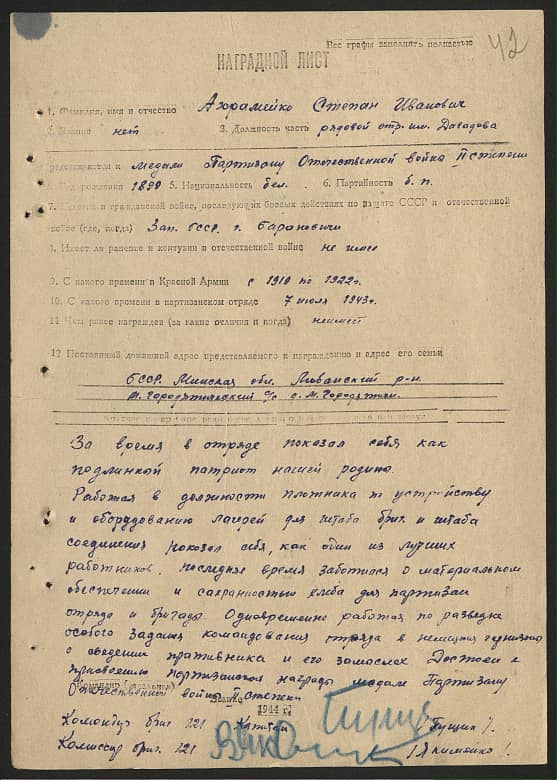 Все графы заполнять полностью
42
НАГРАДНОЙ ЛИСТ
1. Фамилия, имя и отчество Ахрамейко Степан Иванович
2. Звание нет 3. Должность часть рядовой отр. им. Давыдова
представляется к медали Партизану Отечественной война II степени
4. Год рождения 1899 5. Национальность бел. 6. Партийность б. п.
7. Участие в гражданской войне, последующих боевых действиях по защите СССР и отечественной
войне (где, когда) Зап. БССР г. Барановичи
8. Имеет ли ранение и контузии в отечественной войне не имеет
9. С какого времени в Красной Армии с 1919 по 1922 г.
10. С какого времени в партизанском отряде 7 июля 1943 г.
11 Чем ранее награжден (за какие отличия и когда) неимеет
12 Постоянный домашний адрес представляемого к награждению и адрес его семьи
БССР. Минская обл. Любанский р-н
М. Городятический с/с с. М. Городятичи.
За время в отряде показал себя как
подлинной патриот нашей родины.
Работая в должности плотника по устройству
и оборудованию лагерей для штаба бриг. и штаба
соединения показал себя, как один из лучших
работников. последнее время заботился о материальном
обеспечении и сохранностью хлеба для партизан
отряда и бригады. Одновременно работая по разведке
особого задания командования отряда в немецких гарнизонах
о сведении противника и его замыслах Достоен к
присвоению партизанской награды медаль Партизану
Командир (начальник)
Отечественной войны II степени
1944 г.
Командир бриг. 121 Капитан /Гущин/.
Комиссар бриг. 121 /Якименко/.